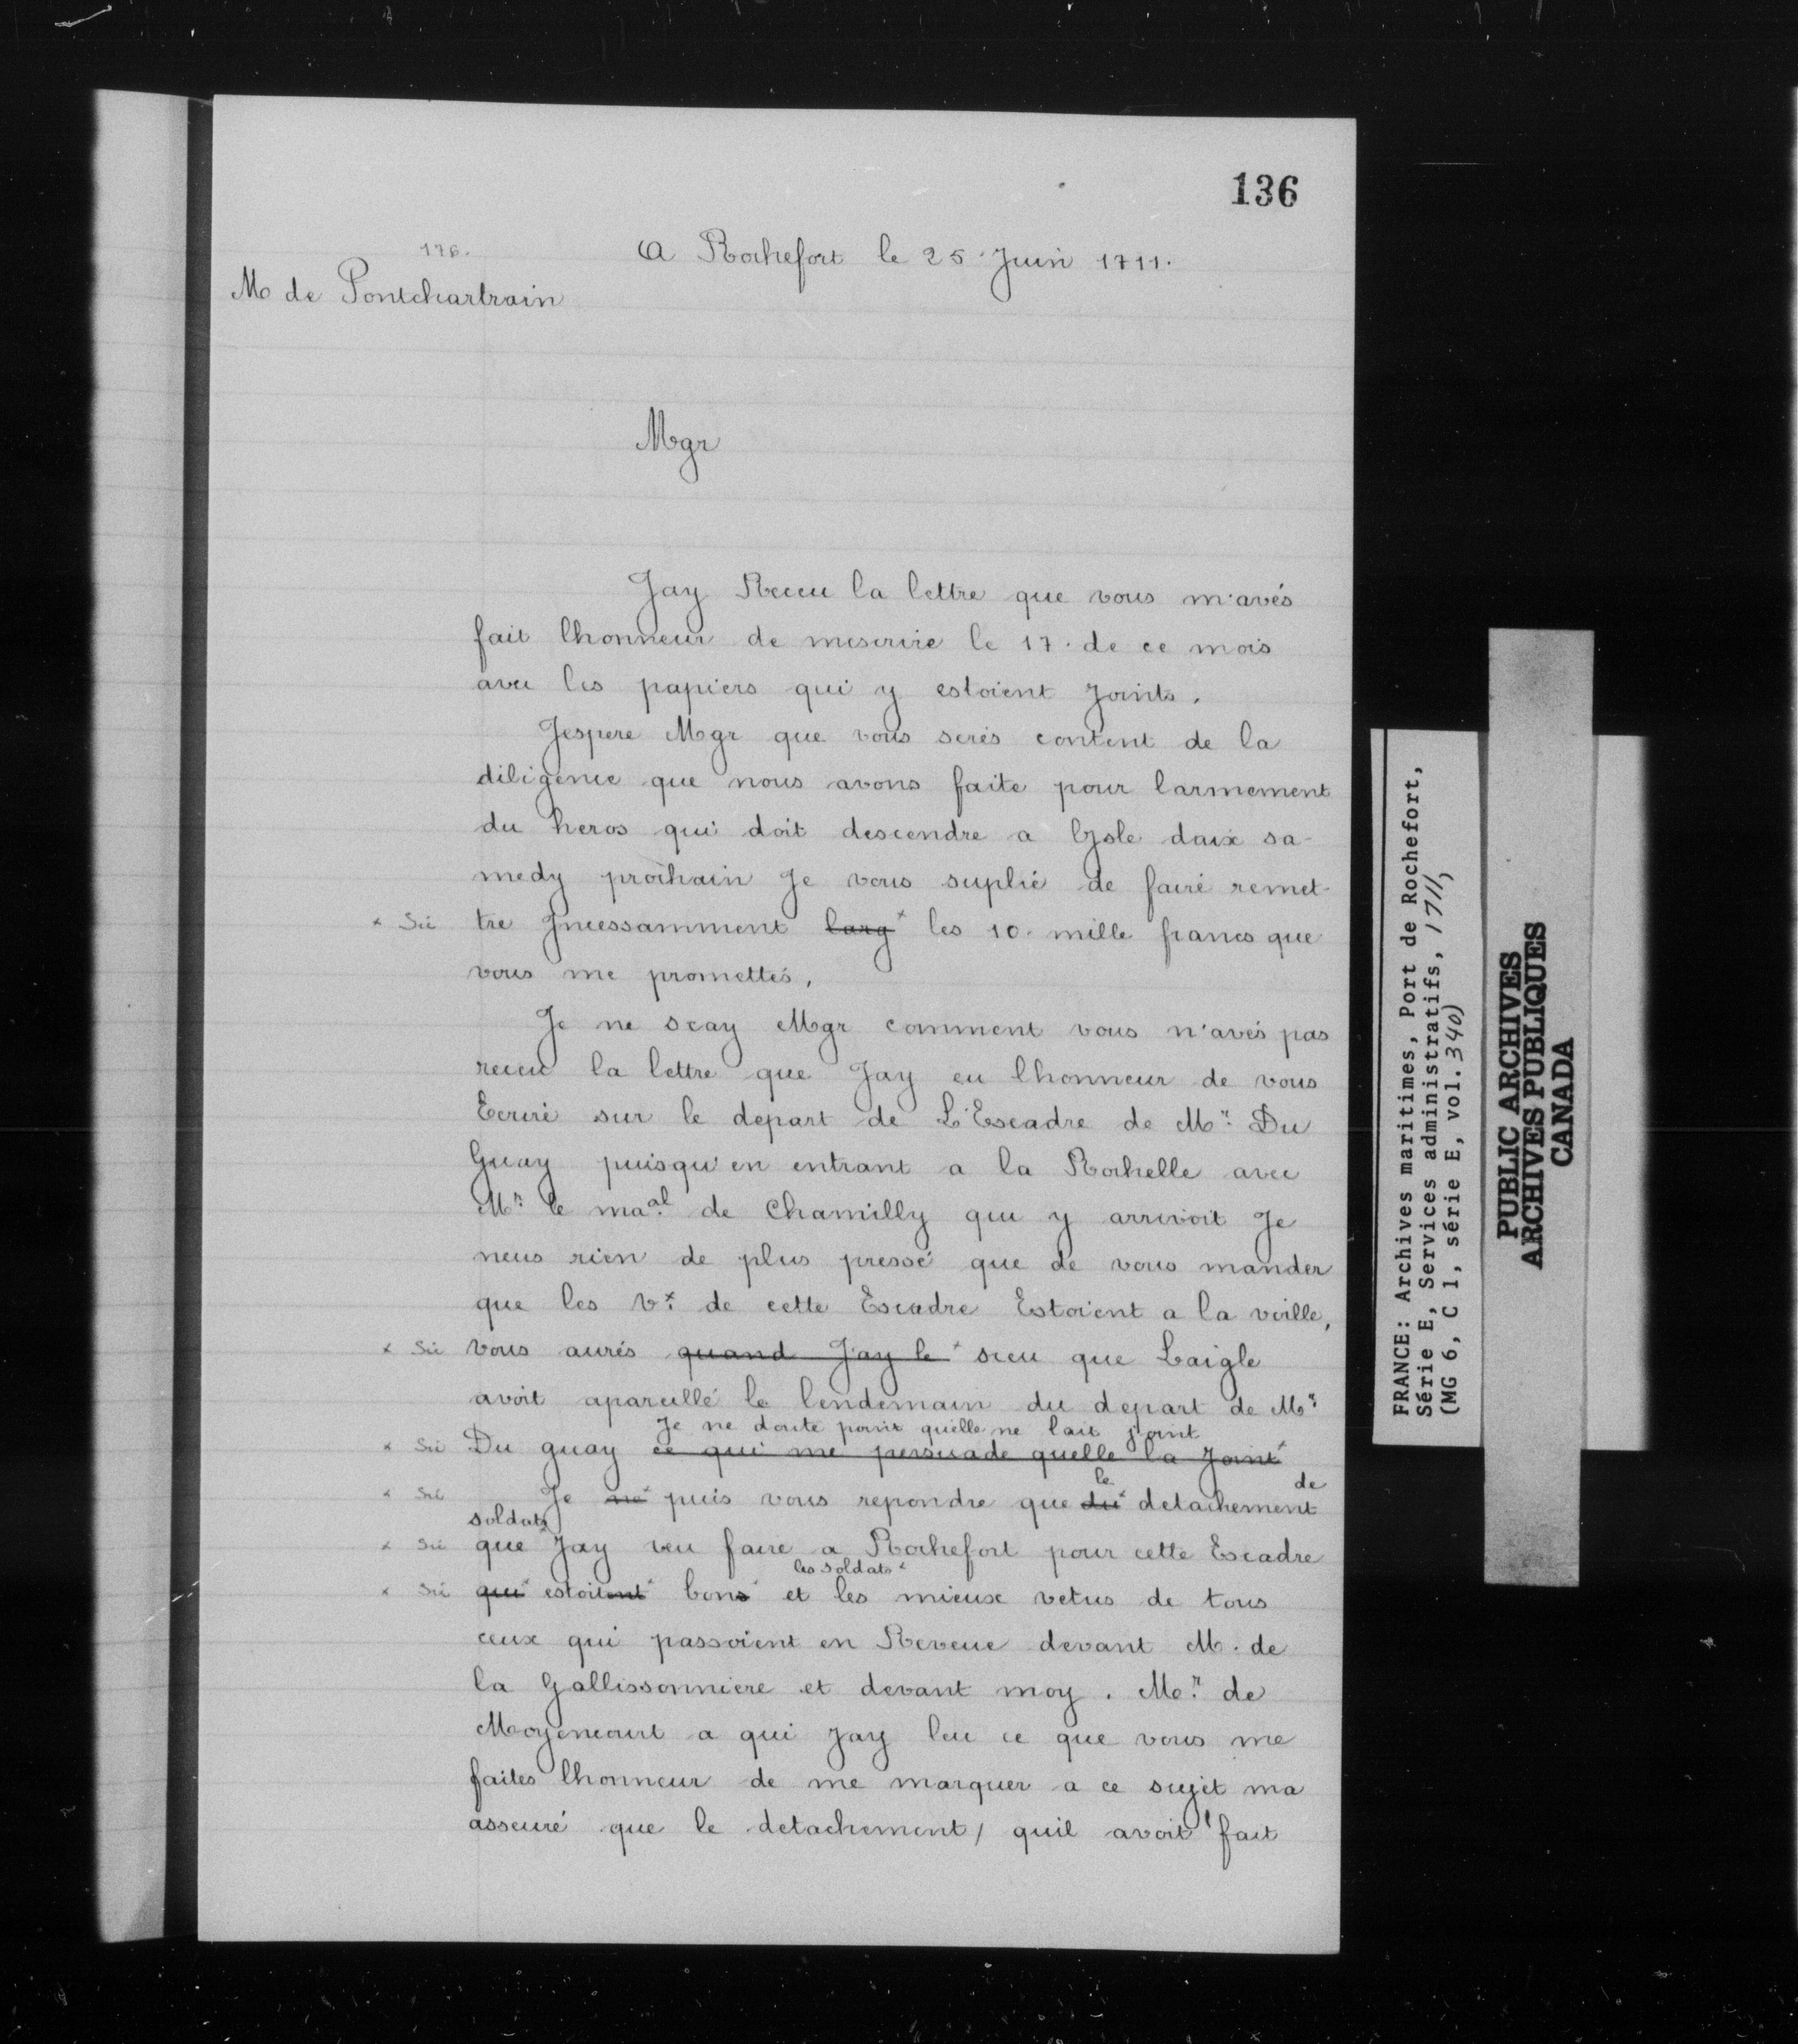 136
176.
A Rochefort le 25 Juin 1711.
M de Pontchartrain
Mgr
Jay Receu la lettre que vous m'avés
fait lhonneur de mescrire le 17. de ce mois
avec les papiers qui y estoient Joints.
Jespere Mgr que vous serés content de la
diligence que nous avons faite pour larmement
du heros qui doit descendre a lysle daix sa-
medy prochain Je vous suplie de faire remet-
x Sic tre Jncessamment larg x les 10. mille francs que
vous me promettés.
Je ne scay Mgr comment vous n'avés pas
receu la lettre que Jay eu lhonneur de vous
Ecrire sur le depart de L'Escadre de Mr. Du
Guay puisqu'en entrant a la Rochelle avec
Mr. le maal. de Chamilly qui y arrivoit Je
neus rien de plus pressé que de vous mander
que les vx. de cette Escadre Estoient a la voille,
x Sic vous aurés quand J'ay le x sceu que Laigle
avoit apareillé le lendemain du depart de Mr.
Je ne doute point quelle ne lait joint
x Sic Du guay ce qui me persuade quelle la Joint x
le de
x Sic Je ne x puis vous repondre que du x detachement
soldats
x Sic que x Jay veu faire a Rochefort pour cette Escadre
les soldats x
x Sic qui x estoient x bons x et les mieux vetus de tous
ceux qui passoient en Reveue devant M. de
la Gallissonniere et devant moy. Mr. de
Moyencourt a qui Jay leu ce que vous me
faites lhonneur de me marquer a ce sujet ma
asseuré que le detachement, quil avoit fait
FRANCE: Archives maritimes, Port de Rochefort,
Série E, Services administratifs, 1711,
(MG 6, C 1, série E, vol. 340)
PUBLIC ARCHIVES
ARCHIVES PUBLIQUES
CANADA